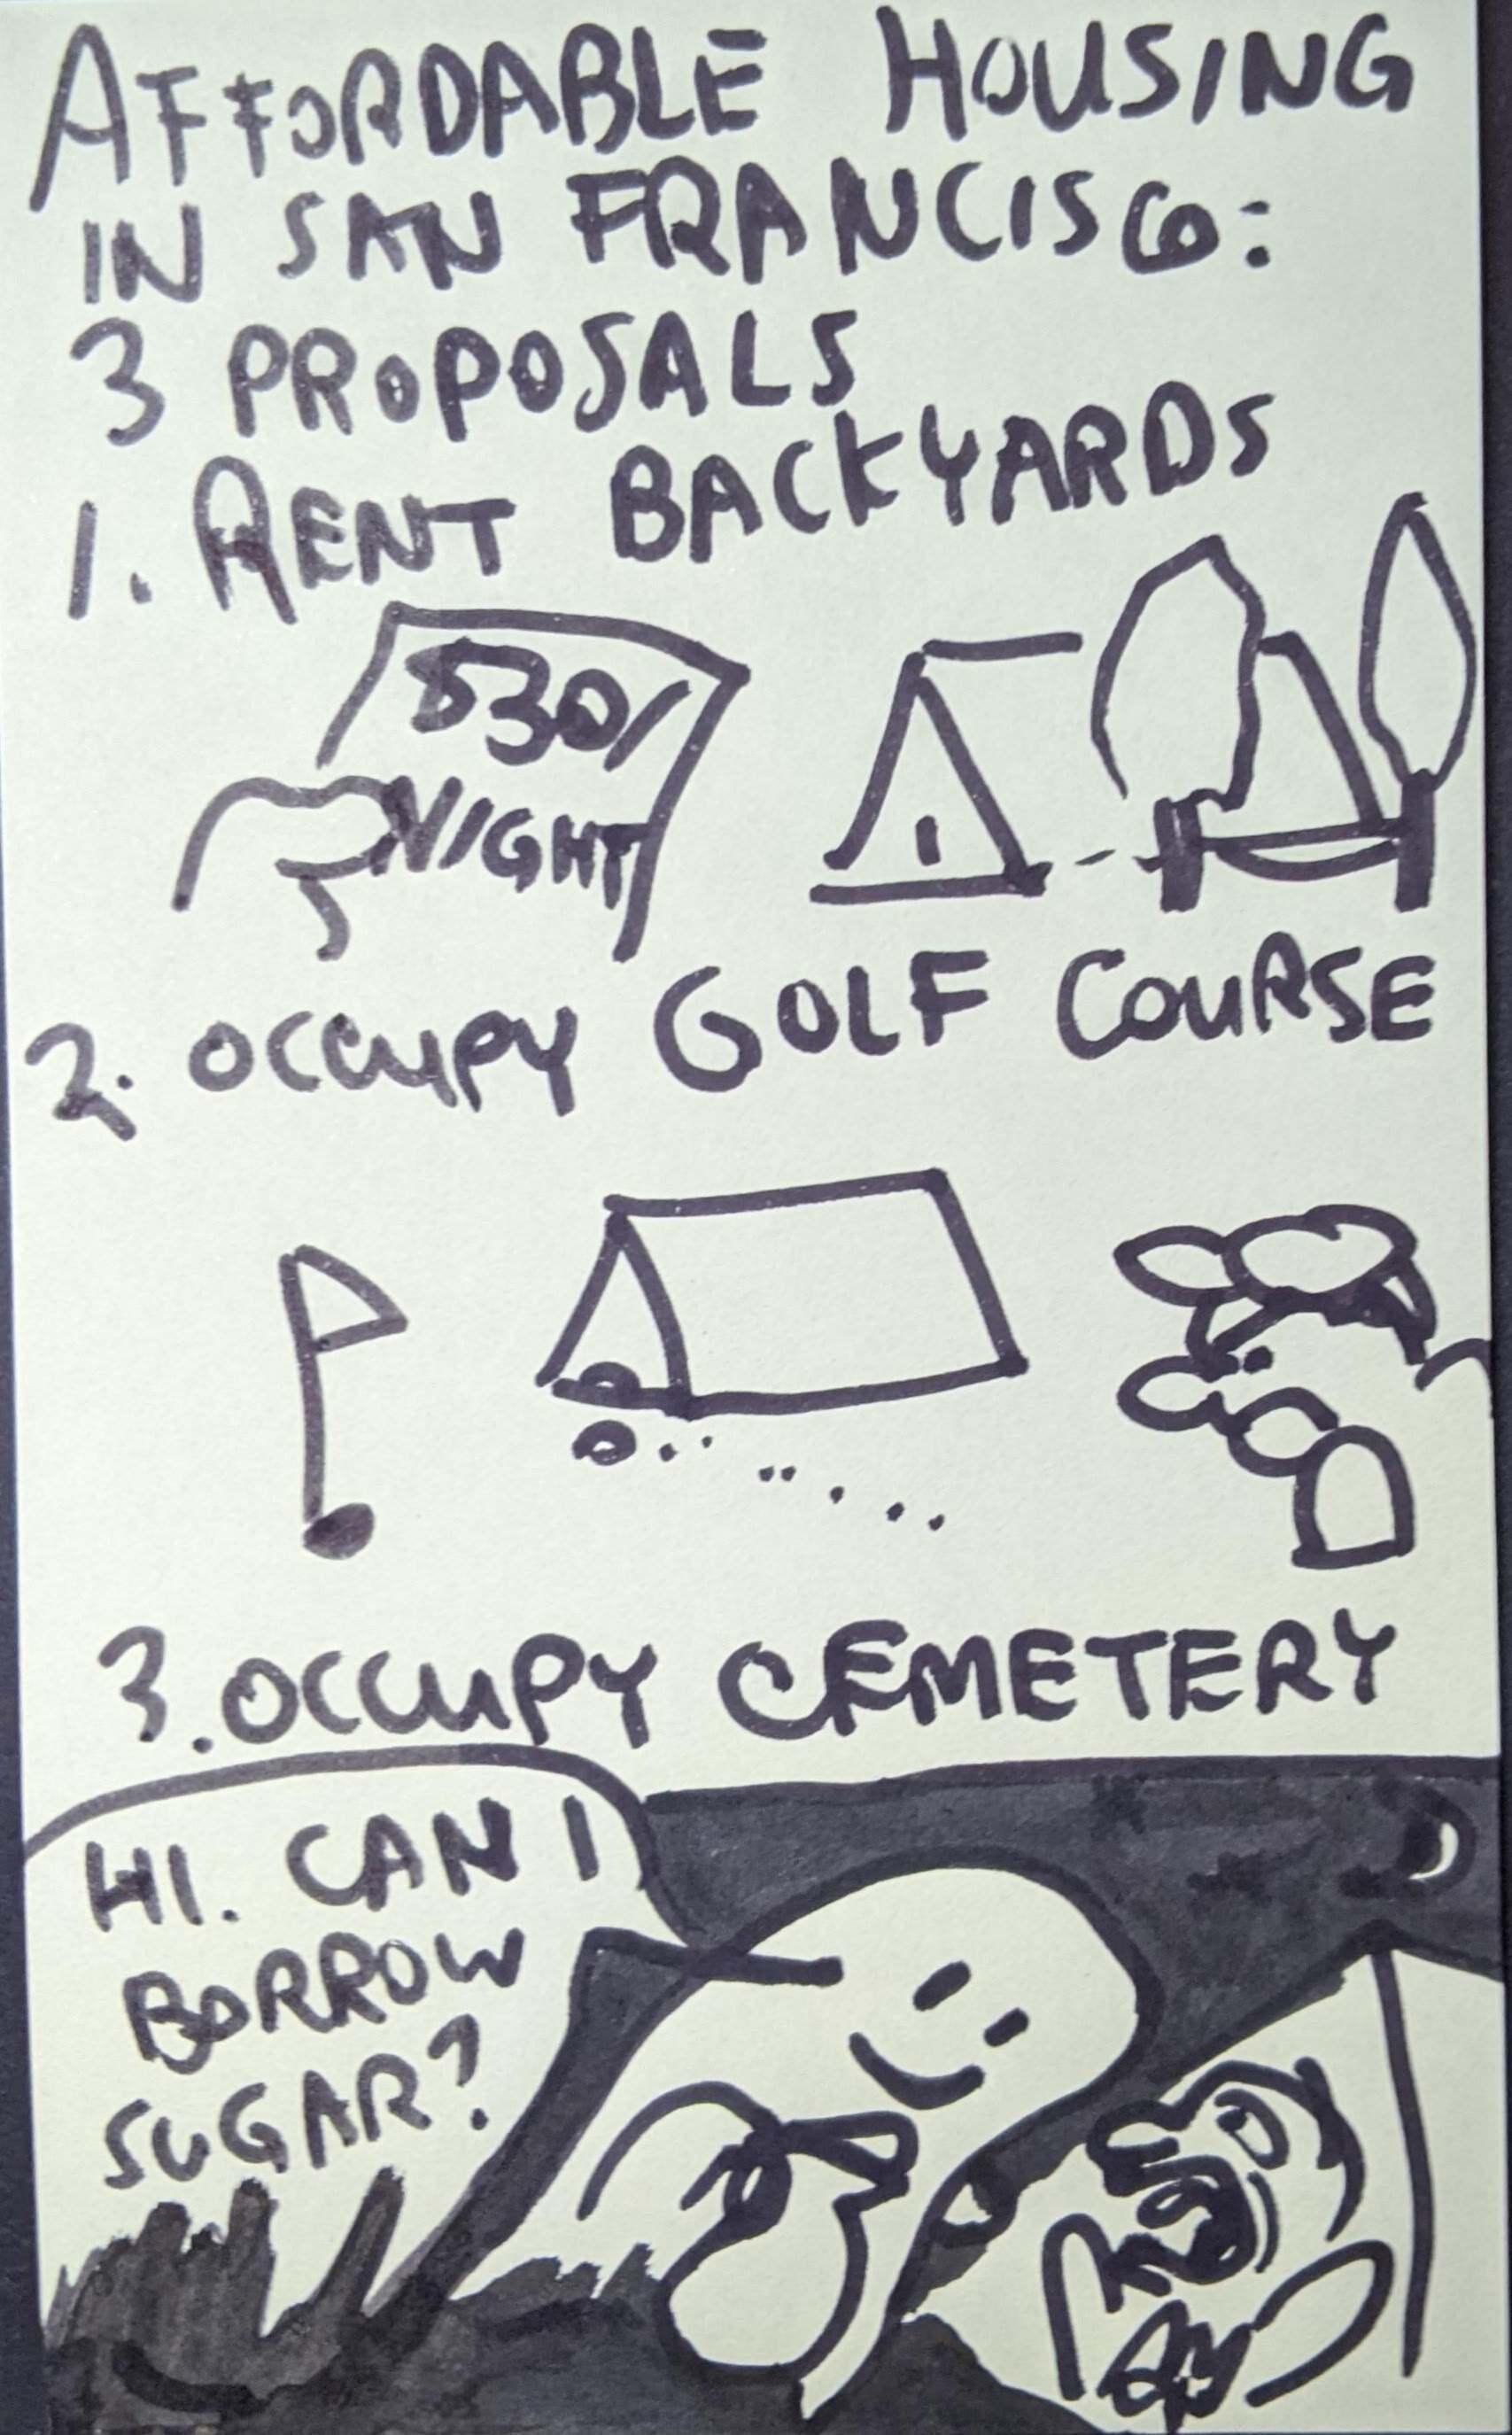 AFFORDABLE HOUSING
IN SAN FRANCISCO:
3 PROPOSALS
1. RENT BACKYARDS
$30/
NIGHT
2. OCCUPY GOLF COURSE
3. OCCUPY CEMETERY
HI. CAN I
BORROW
SUGAR?